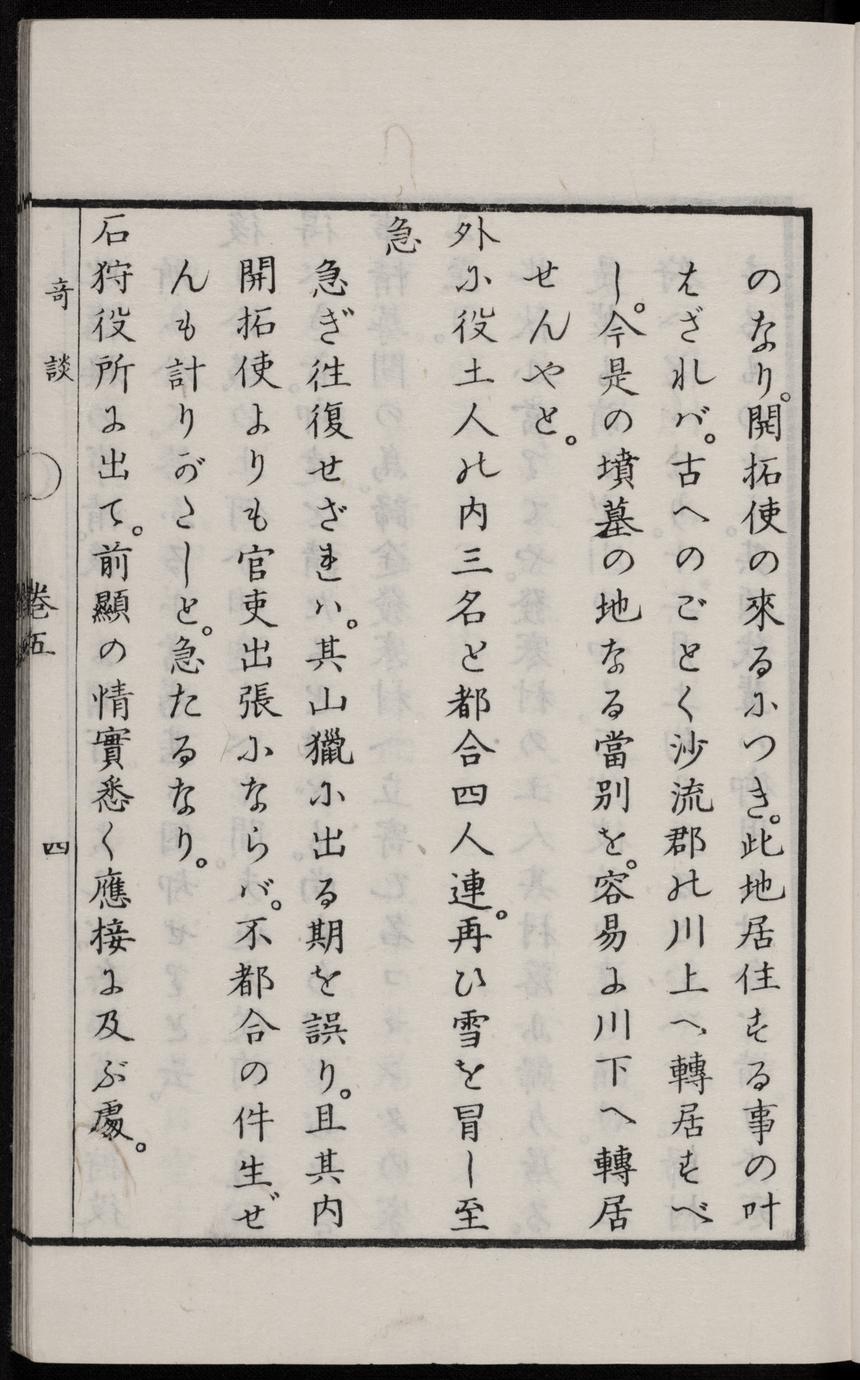 のなり。開拓使の來るにつき。此地居住する事の叶
はざれバ。古へのごとく沙流郡の川上へ轉居すべ
し。今是の墳墓の地なる當別を。容易に川下へ轉居
せんやと。
外に役土人の内三名と都合四人連。再ひ雪を冒し至
急
急ぎ往復せざれハ。其山獵に出る期を誤り。且其内
開拓使よりも官吏出張にならバ。不都合の件生ぜ
んも計りがたしと。急たるなり。
石狩役所に出て。前顯の情實悉く應接に及ぶ處。
奇談 卷五 四